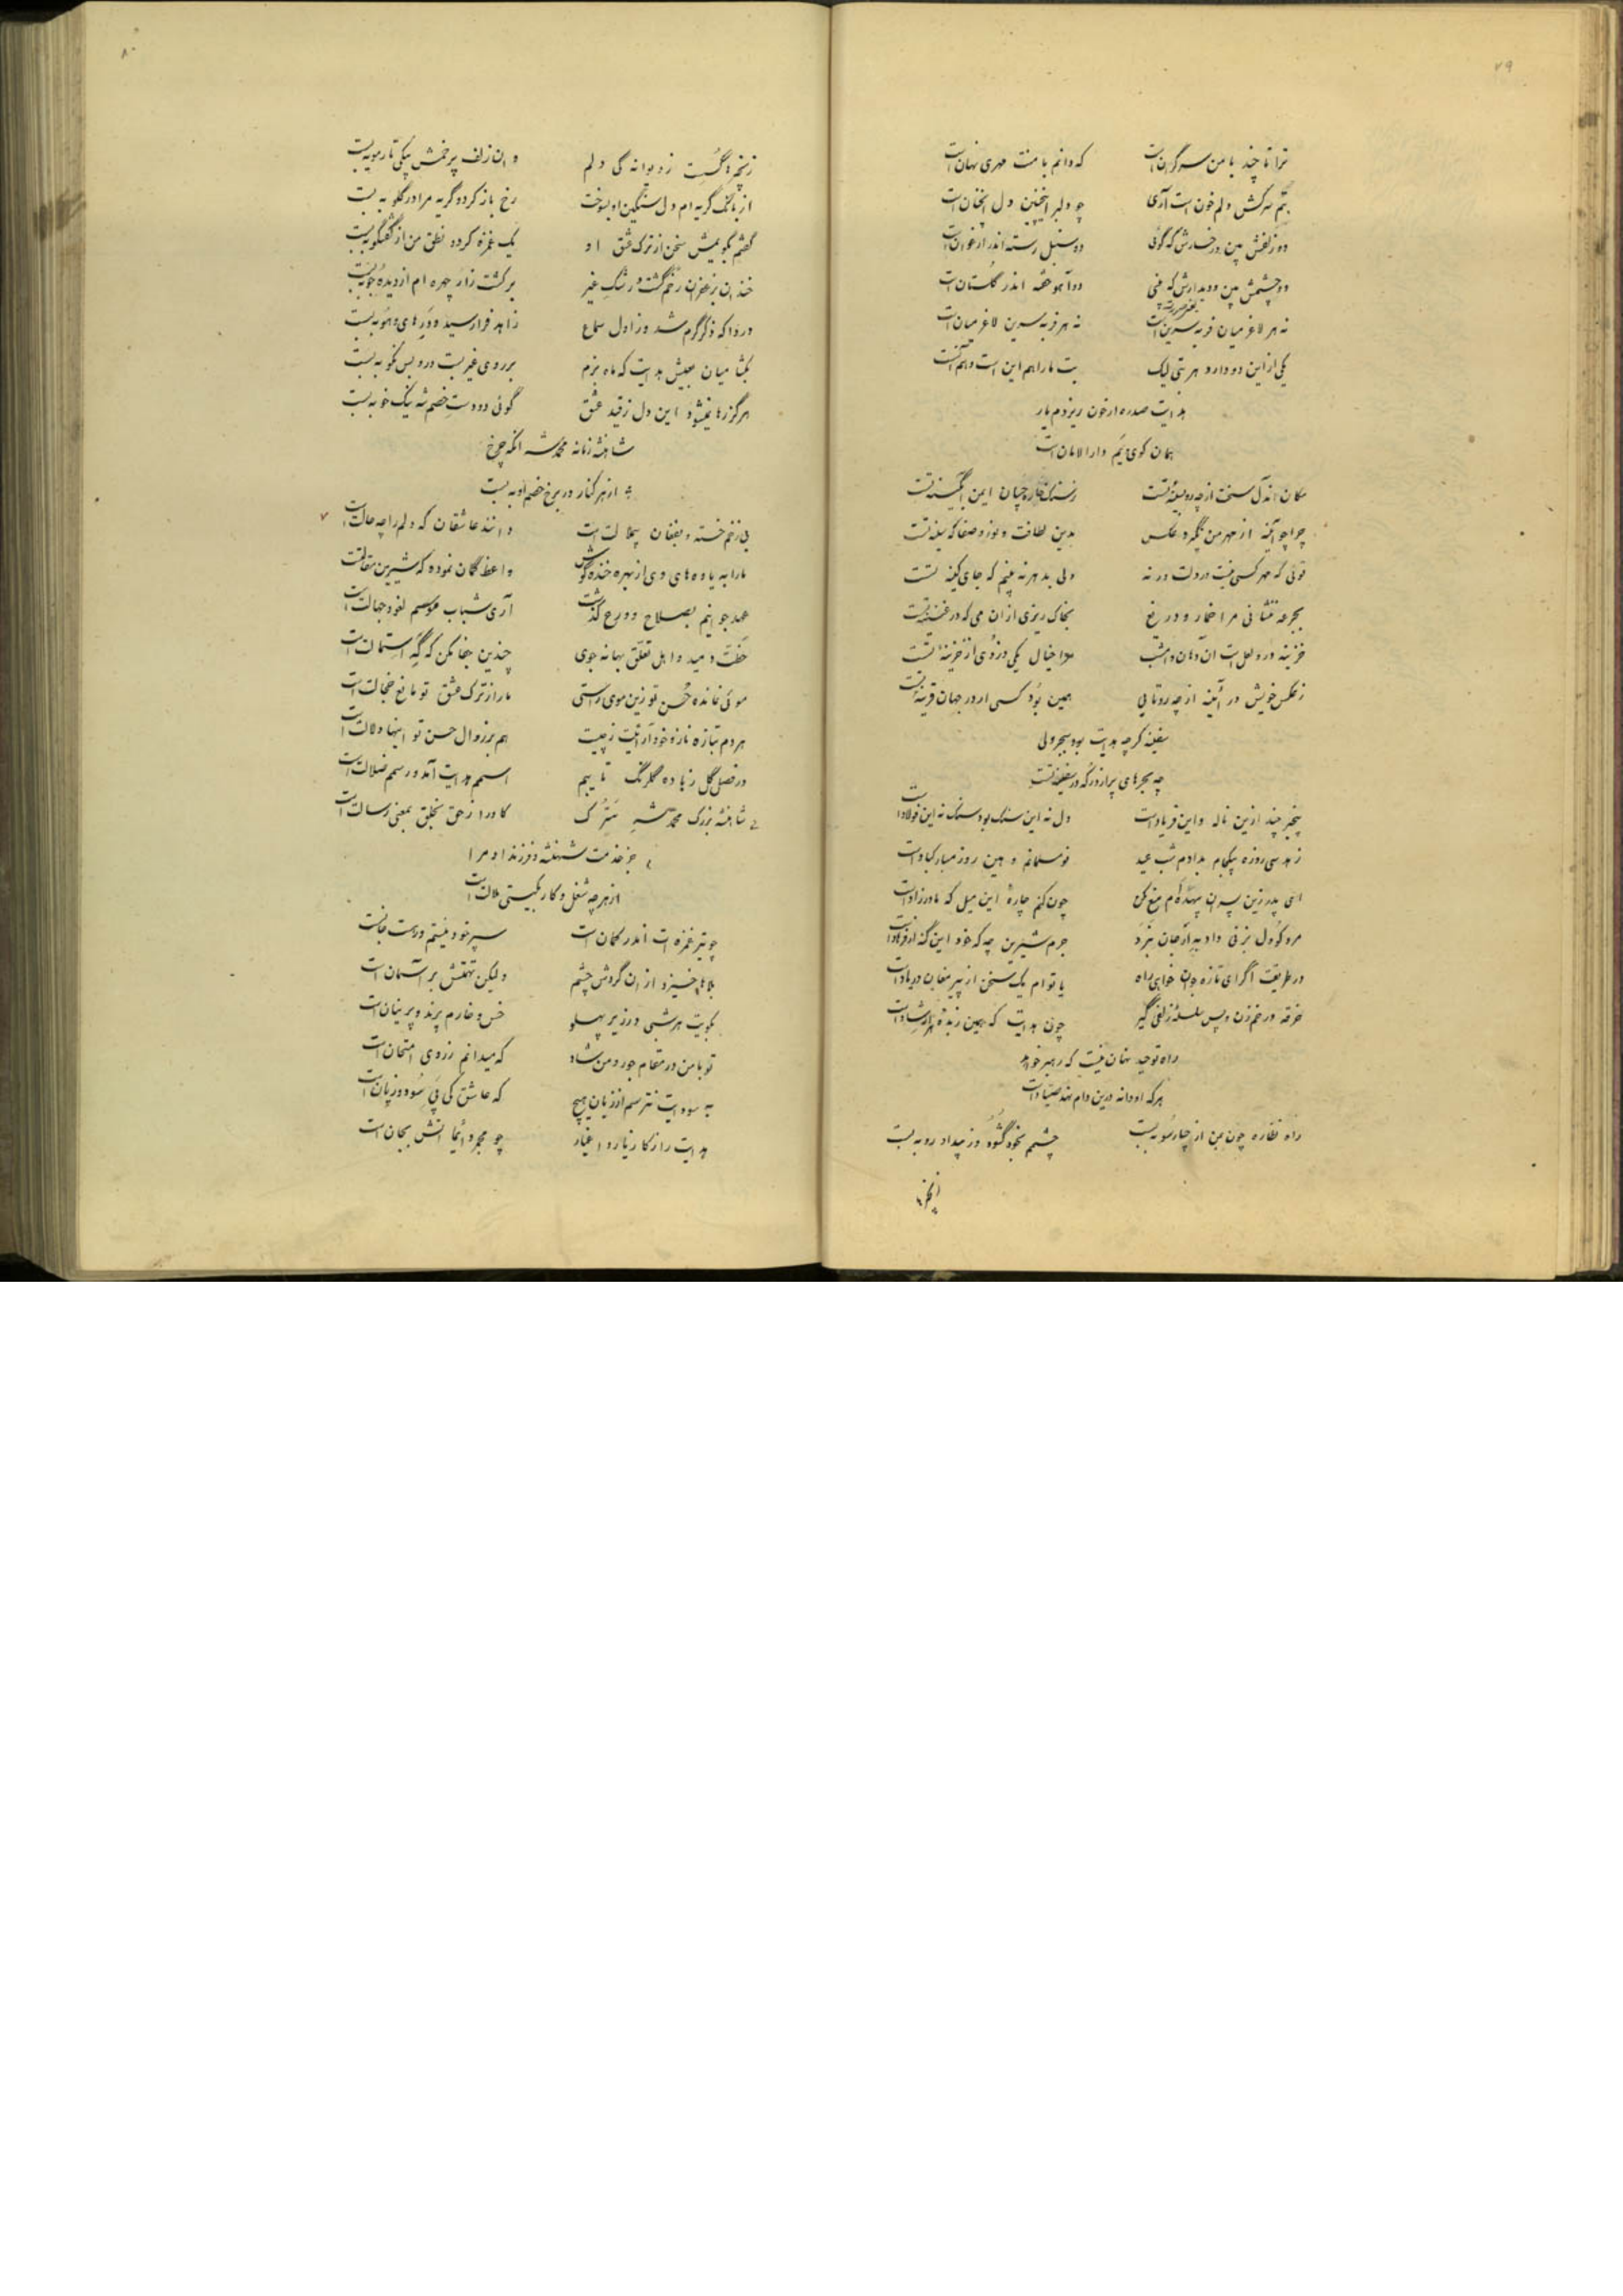 ۷۹
ترا تا چند با من سرگرانست که دانم با منت مهری نهانست
بتم سرکش دلم خون است آری چو دلبر اینچنین دل آنچنانست
دو زلفش بین و رخسارش که گوئی دو سنبل رسته اندر ارغوانست
دو چشمش بین و دیدارش که بینی دو آهو خفته اندر گلستانست
نه هر لاغر میان فربه سرینست نه هر فربه سرین لاغر میانست
یکی از این دو دارد هر بتی لیک بت ما را هم این است و هم آنست
هدایت صد ره ار خون ریزدم یار
همان کوی بتم دارالامانست
مکان آندل سخت از چه رو بسینه تست ز سنگ خاره چسان ایمن آبگینه تست
چرا چو آینه از مهر من نگیرد عکس بدین لطافت و نور و صفا که سینه تست
توئی که مهر کسی نیست در دلت ورنه دلی بدهر نه بینم که جای کینه تست
بجرعه ننشانی مرا خمار و دریغ بخاک ریزی از آن می که در قنینه تست
خزینه در و لعل است آن دهان و امشب مرا خیال یکی دزدی از خزینه تست
ز عکس خویش در آئینه از چه رو تابی همین بود کسی ار در جهان قرینه تست
سفینه گرچه هدایت بود ببحر ولی
چه بحرهای پر از در که در سفینه تست
بیخبر چند ازین ناله و این فریادست دل نه این سنگ بود سنگ نه این فولادست
زهد سی روزه بیکجام بدادم شب عید نو مسلمانم و هین روز مبارکبادست
ای پدر زین پسران بیهده‌ام منع مکن چون کنم چاره این میل که مادرزادست
مرد کو دل بزنی داد به ار جان ببرد جرم شیرین چه که خود این گنه از فرهادست
در طریقت اگر ای تازه جوان خواهی راه یا تو ام یک سخن از پیر مغان در یادست
خرقه در خم زن و پس سلسله زلفی گیر چون هدایت که همین زبده هر ارشادست
راه توحید نهان نیست که رهبر خواهد
هر که او دانه درین دام نهد صیادست
راه نظاره چون بمن از چارسو به بست چشمم بخود گشود و ز بیداد رو به بست
زنجیر
۸۰
زنجیرها گسست ز دیوانه گی دلم وان زلف پر خمش بیکی تار مو به بست
از بانگ گریه ام دل سنگین او بسوخت رخ باز کرد و گریه مرا در گلو به بست
گفتم بگویمش سخن از ترک عشق او یک غمزه کرد و نطق من از گفتگو به بست
خندان بزعفران رخم گشت و رشک غیر بر کشت زار چهره ام از دیده جو به بست
دردا که ذکر گرم شد و ز اول سماع زاهد فرا رسید و در های و هو به بست
بگشا میان بعیش هدایت که ماه بزم بر روی غیر بست در و بس نکو به بست
هرگز رها نمیشود این دل ز قید عشق گوئی دو دست خصم شه نیک خو به بست
شاهنشه زمانه محمد شه آنکه چرخ
از هر کنار در برخ خصم او به بست
بی زخم خسته و بفغان بیملالتست دانند عاشقان که دلم را چه حالتست
ما را به یاوه های وی از بهره خنده گوش واعظ گمان نموده که شیرین مقالتست
عهد جوانیم بصلاح و ورع گذشت آری شباب موسم لغو و جهالتست
خطت دمید و اهل تعلق بهانه جوی چندین جفا مکن که گه استمالتست
موئی نمانده حسن تو زین موی راستی ما را ز ترک عشق تو مانع خجالتست
هر دم بتازه ناز و خودآرائیت ز چیست هم بر زوال حسن تو اینها دلالتست
در فصل گل ز باده گلرنگ تایبیم اسمم هدایت آمد و رسمم ضلالتست
شاهنشه بزرگ محمد شه سترک کاو را ز حق بخلق بمعنی رسالتست
جز خدمت شهنشه و فرزند او مرا
از هر چه شغل و کار بگیتی ملالتست
چو تیر غمزه ات اندر کمانست سپر خود نیستم در دست جانست
بلاها خیزد از آن گردش چشم ولیکن تهمتش بر آسمانست
بکویت هر شبی در زیر پهلو خس و خارم پرند و پرنیانست
تو با من در مقام جور و من شاد که میدانم ز روی امتحانست
به سودایت نترسم از زیان هیچ که عاشق کی پی سود و زیانست
هدایت راز کار یار و اغیار چو مجمر دائما آتش بجانست